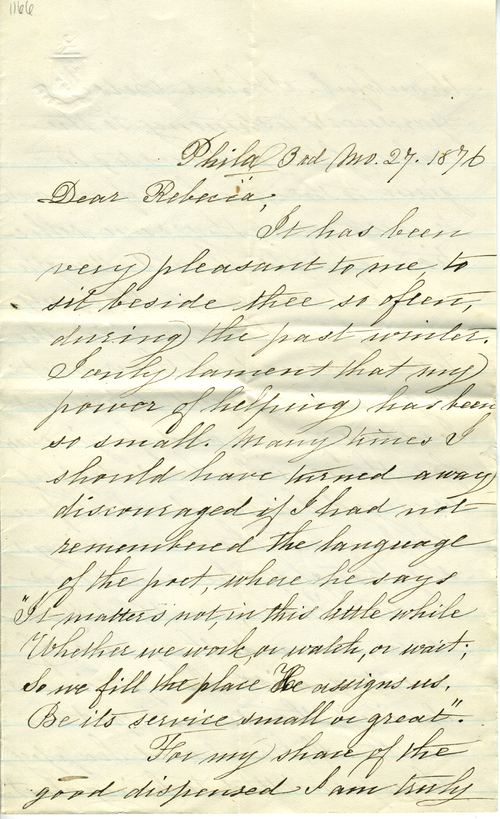 1166
Phila 3rd Mo. 27. 1876
Dear Rebecca,
It has been
very pleasant to me, to
sit beside thee so often,
during the past winter.
I only lament that my
power of helping has been
so small. Many times I
should have turned away
discouraged if I had not
remembered the language
of the poet, where he says
"It matters not in this little while
Whether we work, or watch, or wait;
So we fill the place He assigns us,
Be its service small or great".
For my share of the
good dispensed I am truly